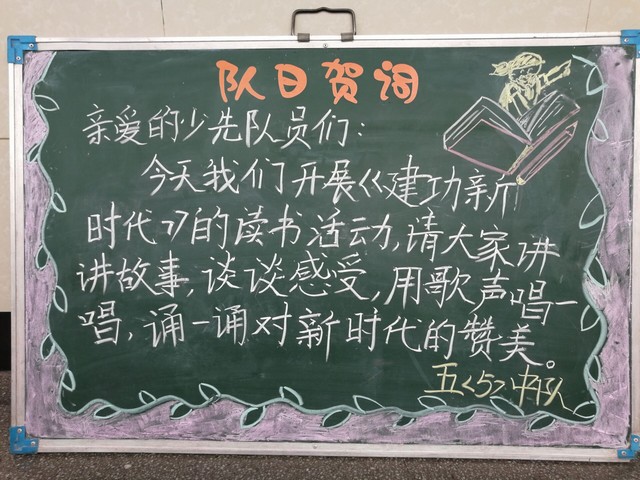 队日贺词
亲爱的少先队员们：
今天我们开展《建功新
时代》的读书活动,请大家讲
讲故事,谈谈感受,用歌声唱一
唱,诵一诵对新时代的赞美。
五<5>中队